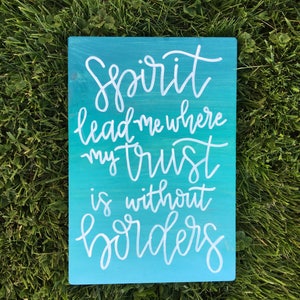 spirit
lead me where
my trust
is without
borders